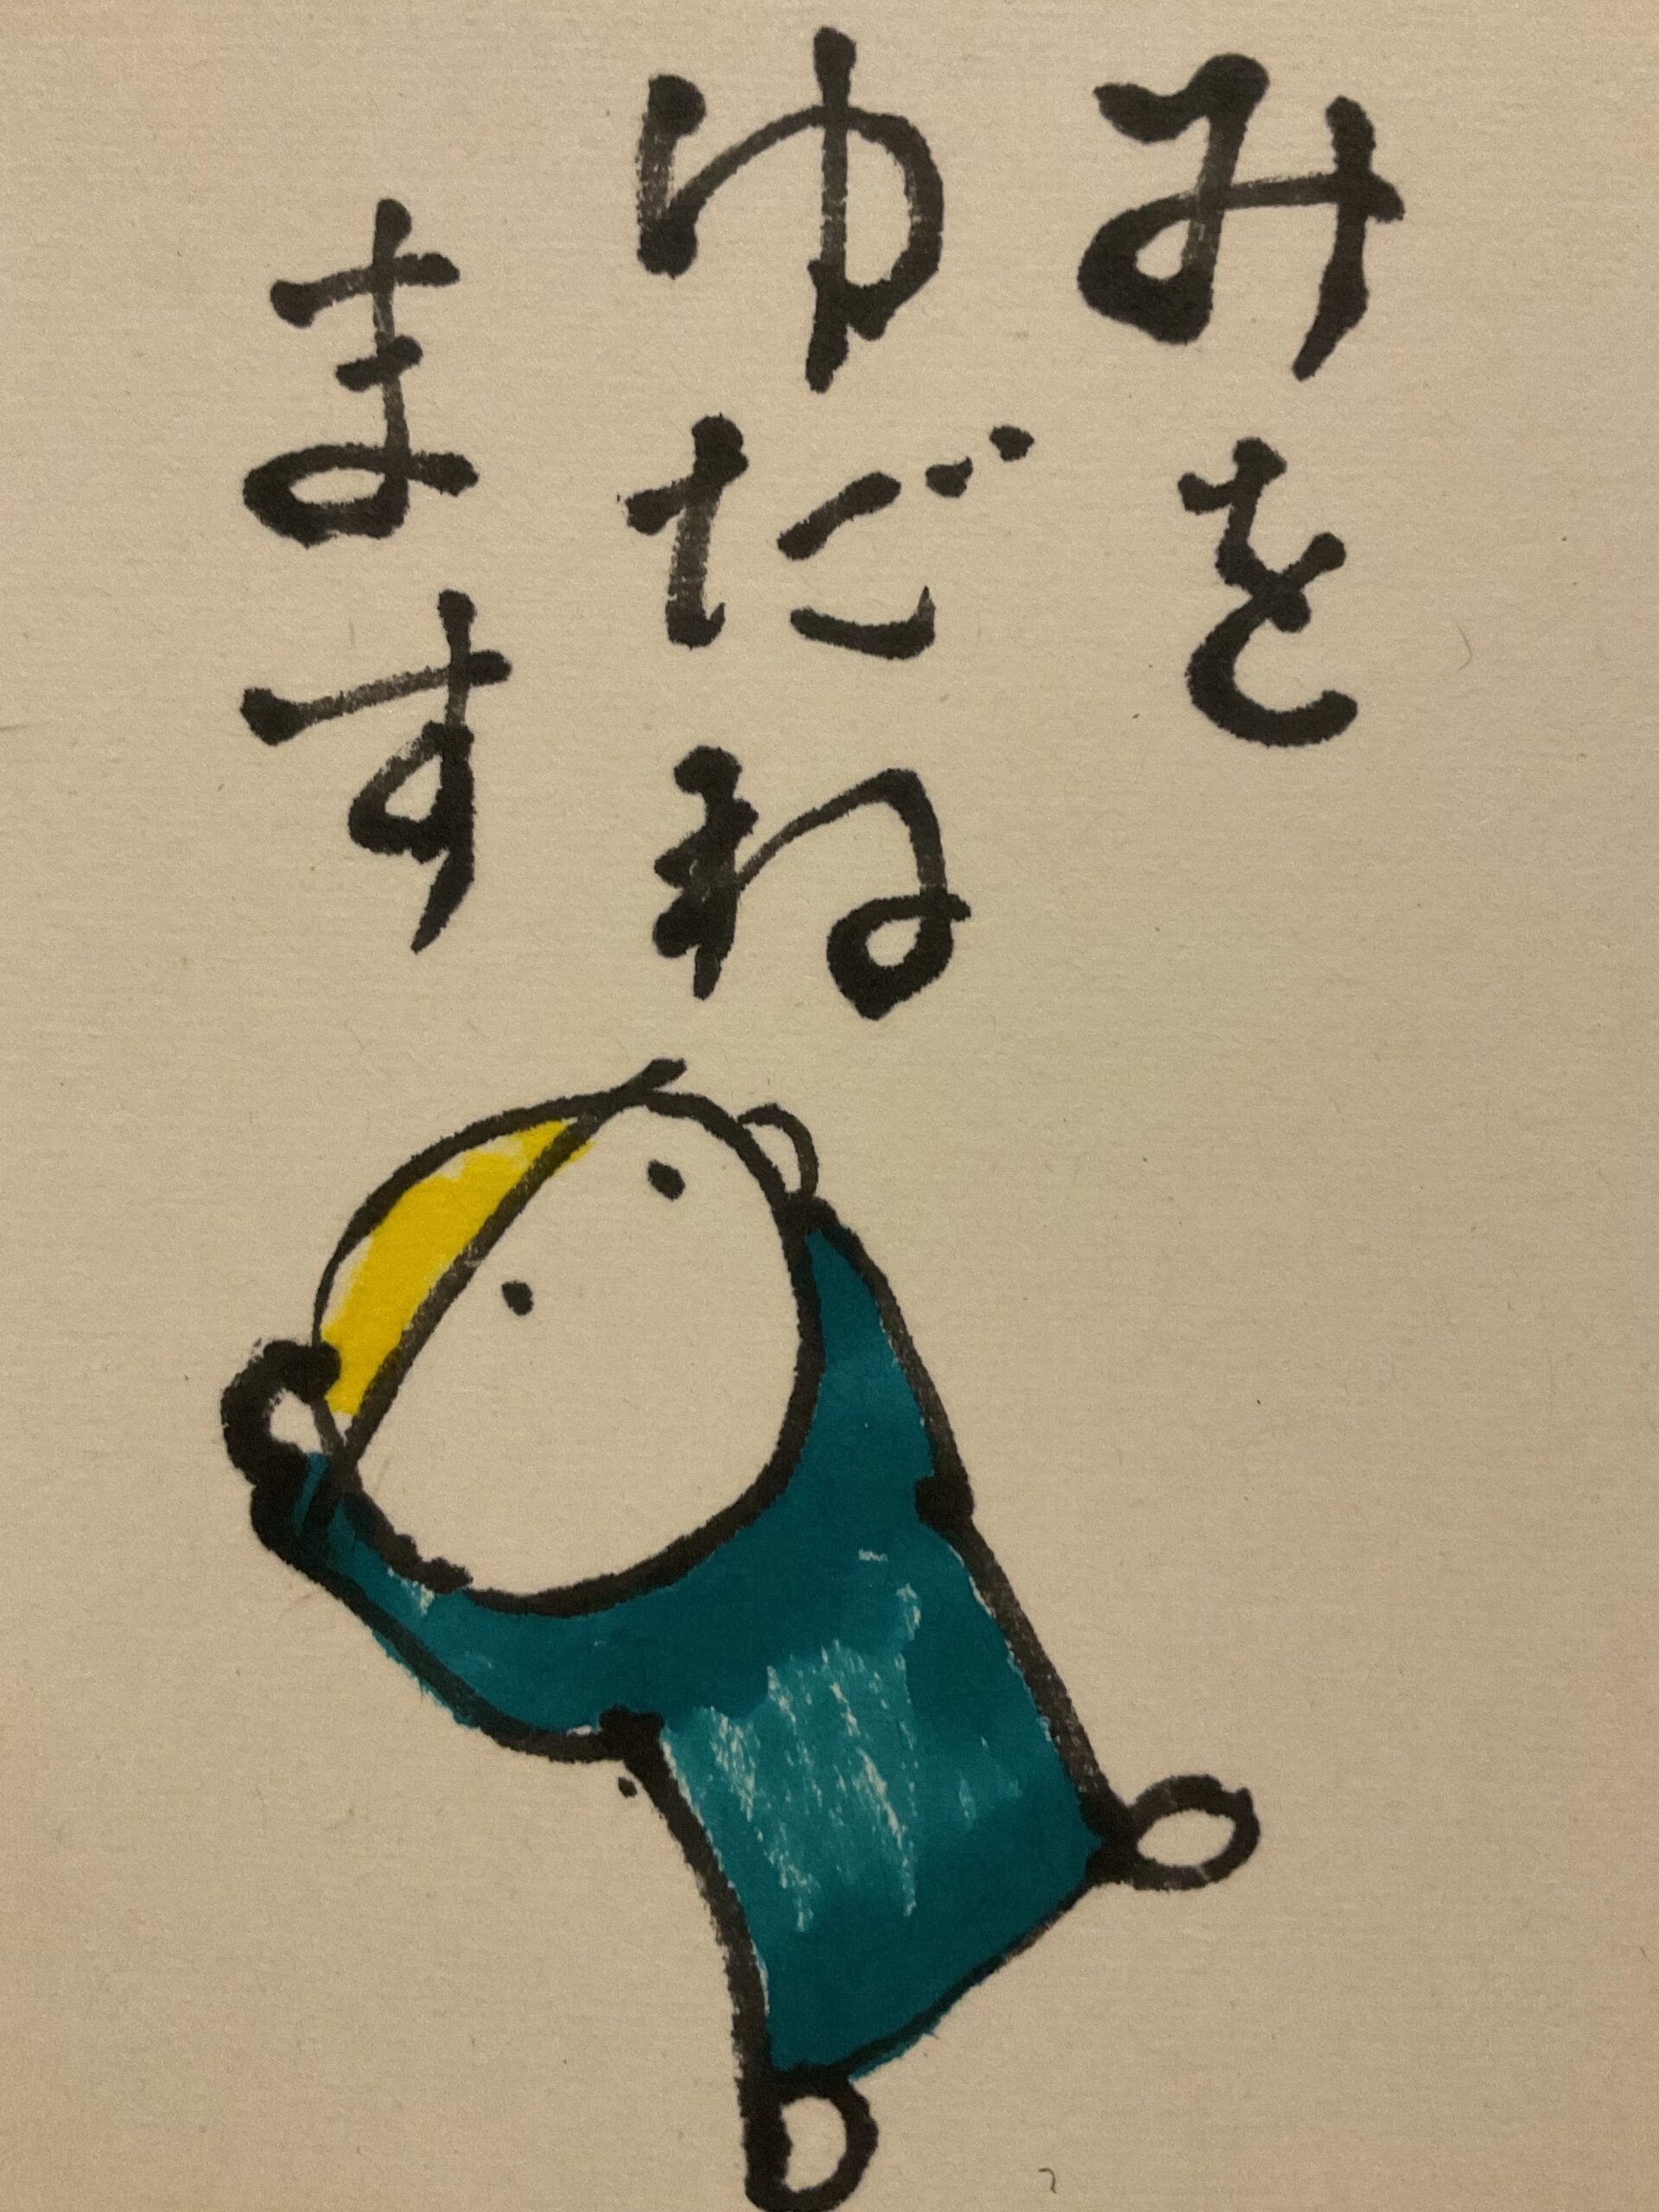 みを
ゆだね
ます